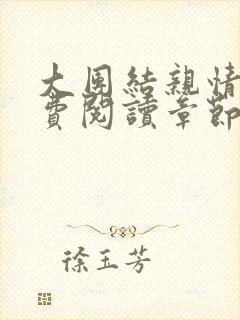 大団結親情
費閱讀章節
徐玉芳